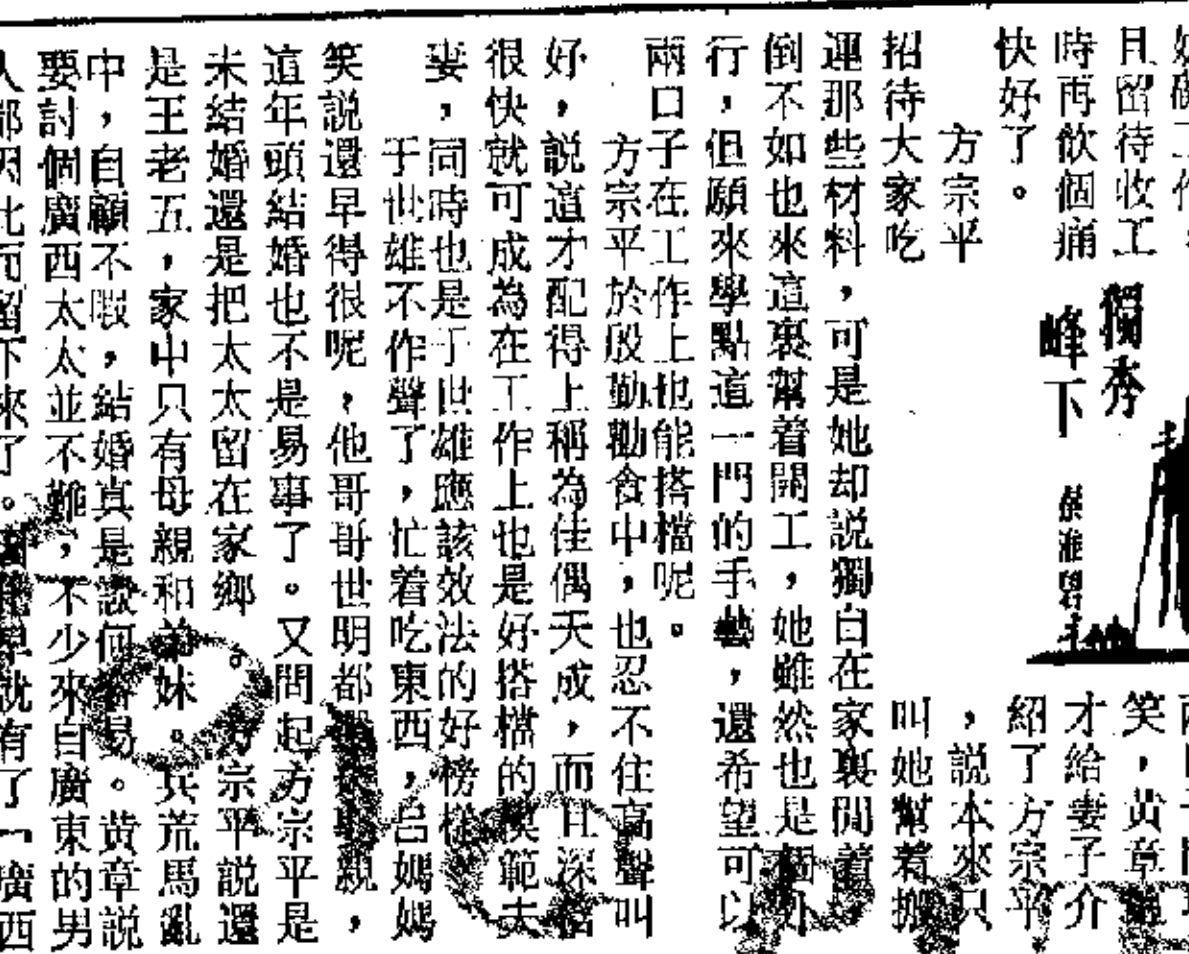 且留待收工
時再飲個痛
快好了。
方宗平
招待大家吃
獨秀
峰下
笑，黃章
才給妻子介
紹了方宗平
，説本來只
叫她幫着搬
運那些材料，可是她却説獨自在家裏閒着，
倒不如也來這裏幫着開工，她雖然也是個外
行，但願來學點這一門的手藝，還希望可以
兩口子在工作上也能搭檔呢。
方宗平於殷勤勸食中，也忍不住高聲叫
好，説這才配得上稱為佳偶天成，而且深信
很快就可成為在工作上也是好搭檔的模範夫
妻，同時也是于世雄應該效法的好榜樣
于世雄不作聲了，忙着吃東西，呂媽媽
笑説還早得很呢，他哥哥世明都還未娶親，
這年頭結婚也不是易事了。又問起方宗平是
未結婚還是把太太留在家鄉。方宗平説還
是王老五，家中只有母親和弟妹。兵荒馬亂
中，自顧不暇，結婚真是談何容易。黃章説
要討個廣西太太並不難，不少來自廣東的男
人都因此而留下來了。早就有了「廣西